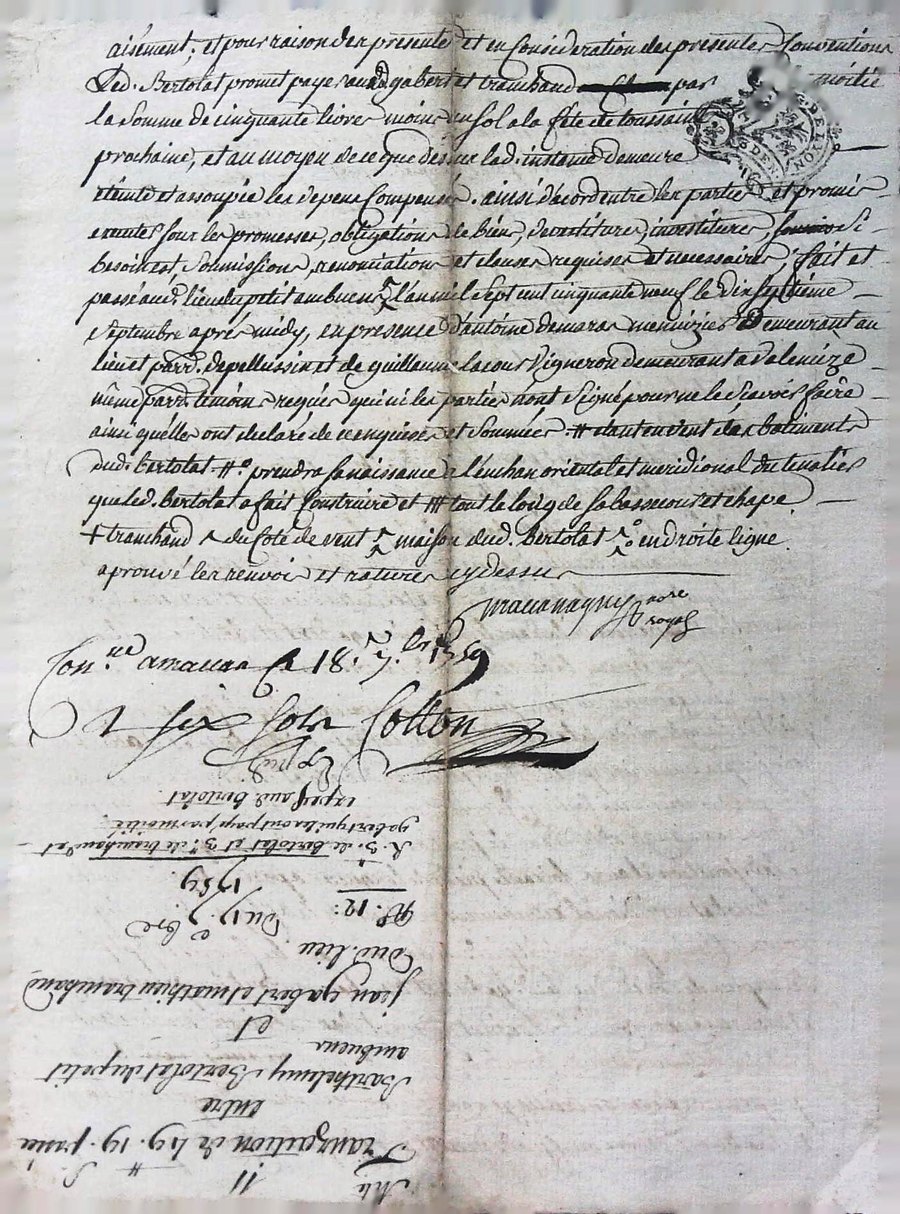 aisement; et pour raison des presente et en Consideration des presentes Conventions
Led. Bertolat promet paye auxd. gabert et tranchand par moitié
la Somme de cinquante livres moins un sol a la fête de toussaint
prochaine, et au moyen de ce que dessus lad. instance demeure
éteinte et assoupie les depens Compensés. ainsi d'acord entre les parties et promis
executer sous les promesses, obligations de biens, devestitures, investitures, Si
besoin est, Soumissions, renonciations et clauses requises et necessaires; fait et
passé aud. lieu du petit ambuent l'an mil Sept cent cinquante neuf le dix Septième
Septembre aprés midy, en presence d'antoine demaras menuizier Demeurant au
lieu et parr. de pellussin et de guillaume lacour Vigneron demeurant a valenize
même parr. temoins requis qui ni les parties n'ont Signé pour ne le Sçavoir faire
ainsi qu'elles ont declaré de ce enquises et Sommées. # dautemvent des batiments
dud. bertolat # prendra sa naissance a l'enchan oriental et meridional du tenalier
que led. Bertolat a fait Construire et # tout le long de sa basse cour et chape.
+ tranchand du Coté de vent maison dud. Bertolat en droite ligne
aprouvé les renvois et ratures cy dessus
nore
royal
Con.lé a le 18. 7.bre 1759
R six sols Cotton
Exped
expe aud. bertolat
gabert qui la ont payé par moitié
R 3. de bertolat et 3. de tranchand et
1759
Du 17. 7bre
12:
Dud. lieu
jean gabert et mathieu tranchand
et
ambuent
Barthelemy Bertolat du petit
entre
Tranzaction de 49. 19.
11